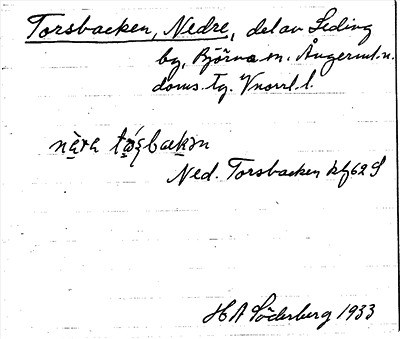 Torsbacken, Nedre, del av Leding
by, Björna sn. Ångerml. n.
doms. tg. Vnorrl. l.
Ned. Torsbacken kbf 62 S
H A Söderberg 1933